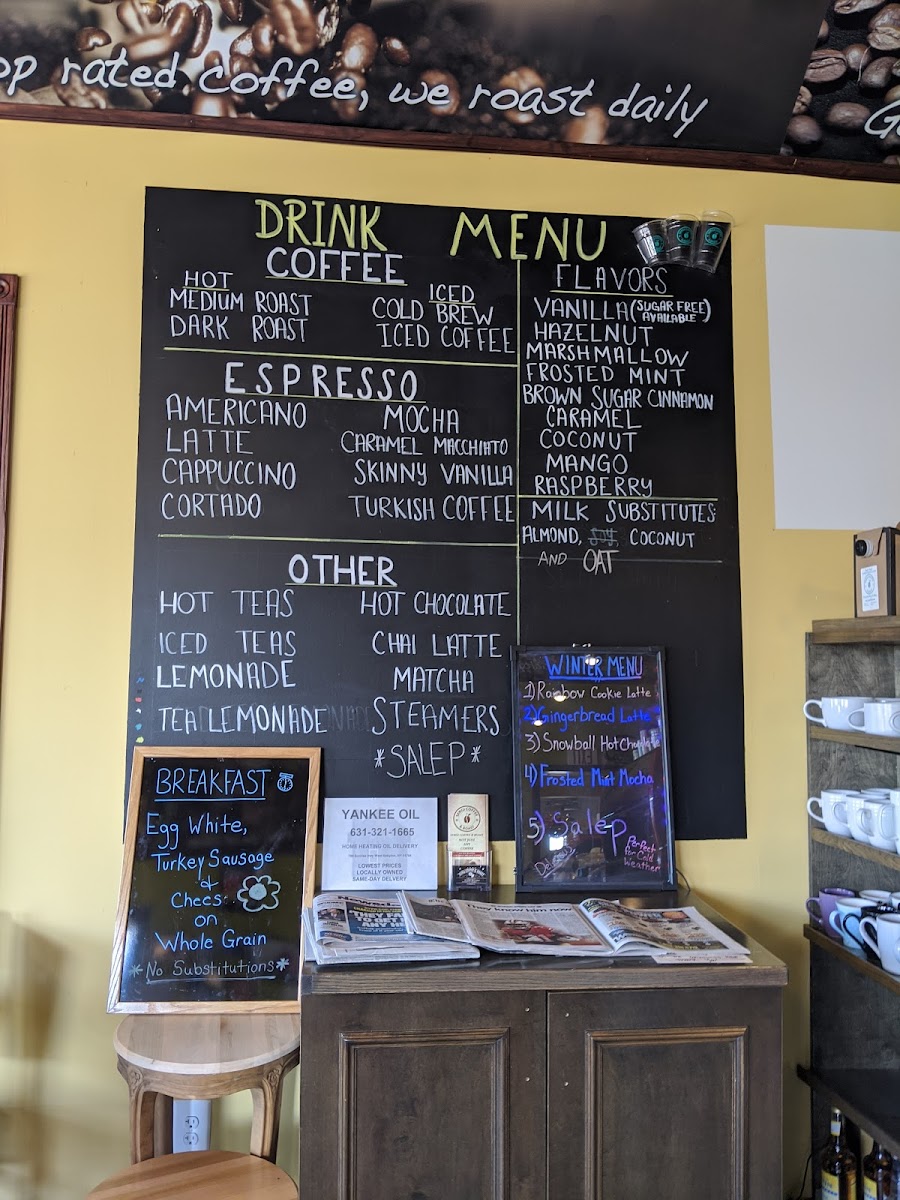 op rated coffee, we roast daily
G
DRINK MENU
COFFEE
HOT
MEDIUM ROAST
DARK ROAST
ICED
COLD BREW
ICED COFFEE
ESPRESSO
AMERICANO
LATTE
CAPPUCCINO
CORTADO
MOCHA
CARAMEL MACCHIATO
SKINNY VANILLA
TURKISH COFFEE
OTHER
HOT TEAS
ICED TEAS
LEMONADE
TEA LEMONADE
HOT CHOCOLATE
CHAI LATTE
MATCHA
STEAMERS
*SALEP*
FLAVORS
VANILLA (SUGAR FREE AVAILABLE)
HAZELNUT
MARSHMALLOW
FROSTED MINT
BROWN SUGAR CINNAMON
CARAMEL
COCONUT
MANGO
RASPBERRY
MILK SUBSTITUTES:
ALMOND, COCONUT
AND OAT
WINTER MENU
1) Rainbow Cookie Latte
2) Gingerbread Latte
3) Snowball Hot Chocolate
4) Frosted Mint Mocha
5) Salep
Perfect
for Cold
Weather
BREAKFAST
Egg White,
Turkey Sausage
&
Chees
on
Whole Grain
*No Substitutions*
YANKEE OIL
631-321-1665
HOME HEATING OIL DELIVERY
LOWEST PRICES
LOCALLY OWNED
SAME-DAY DELIVERY
Newsday
They know Iam now